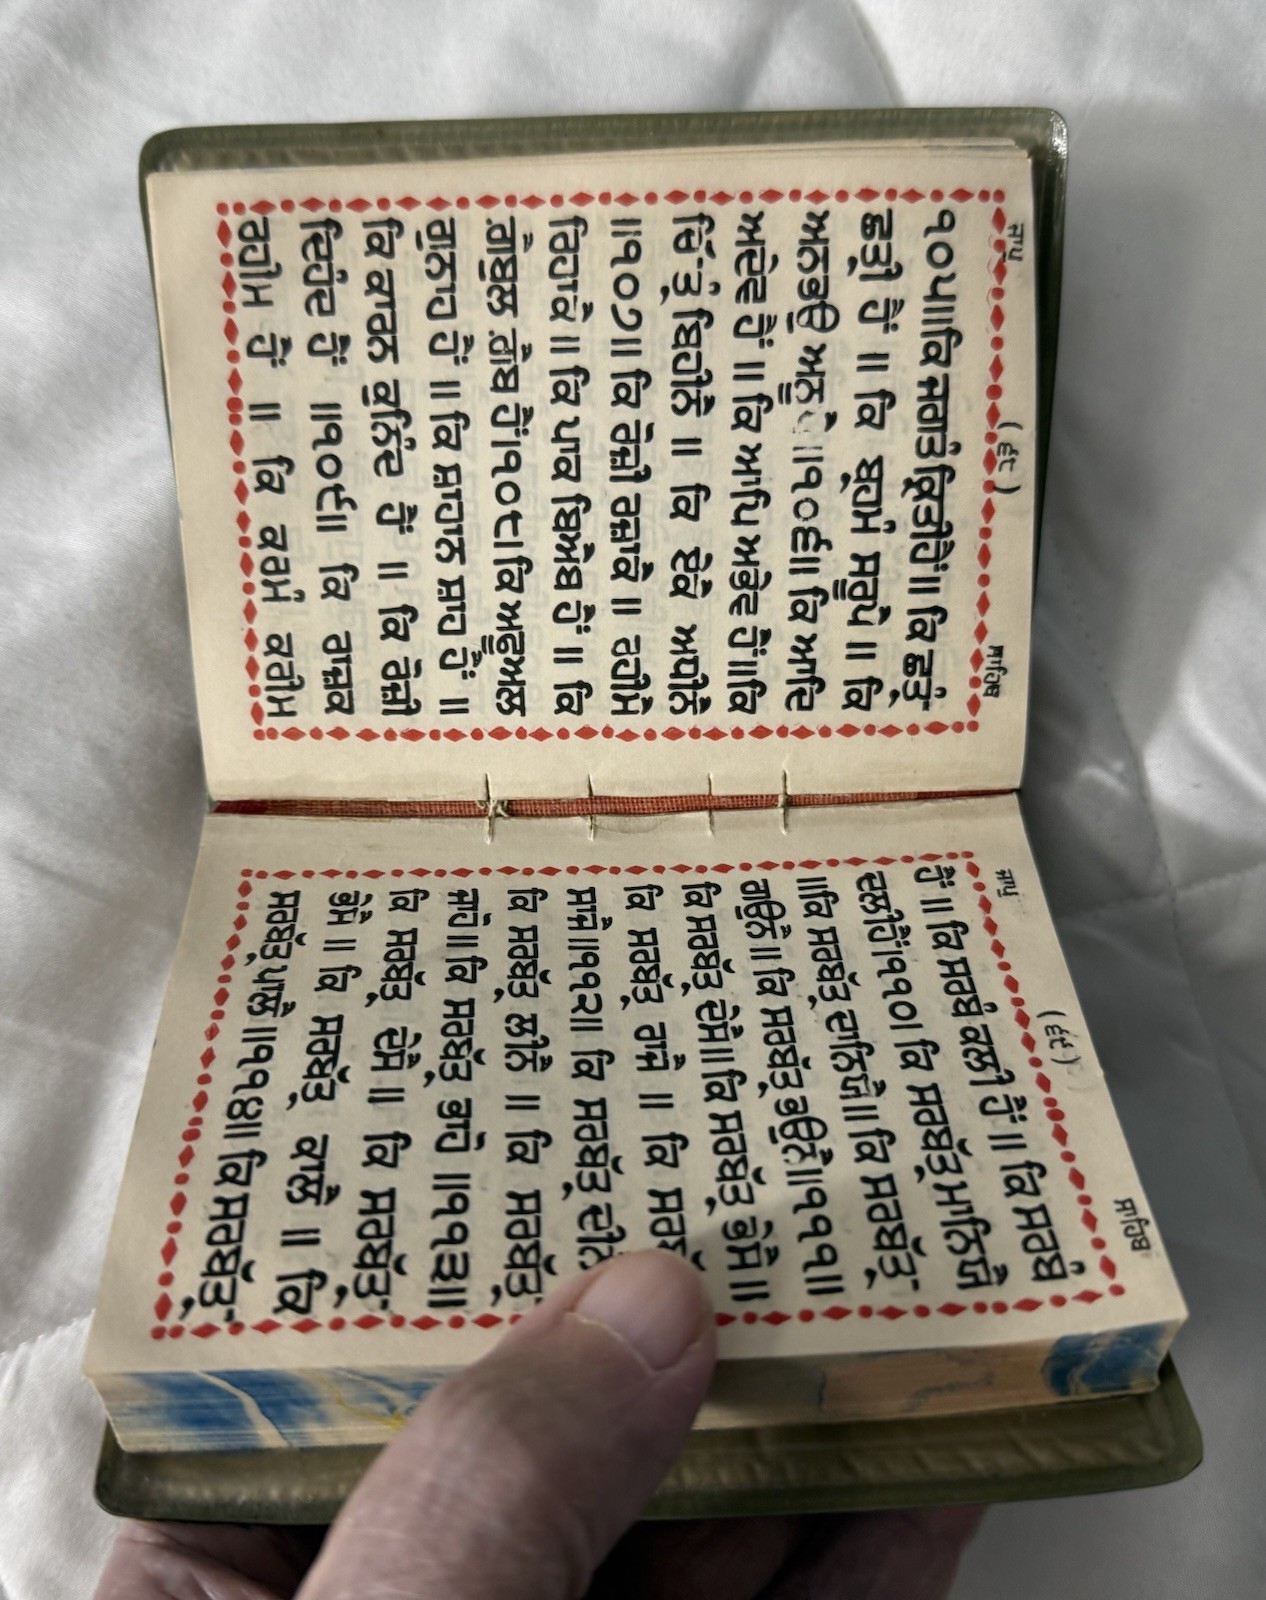 ਜਾਪੁ (੬੮) ਸਾਹਿਬ
੧੦੫॥ਕਿ ਜਗਤੰ ਕ੍ਰਿਤੀਹੈਂ॥ ਕਿ ਛਤ੍ਰੰ
ਛਤ੍ਰੀ ਹੈਂ ॥ ਕਿ ਬ੍ਰਹਮੰ ਸਰੂਪੈ ॥ ਕਿ
ਅਨਭਉ ॥੧੦੬॥ ਕਿ ਆਦਿ
ਅਦੇਵ ਹੈਂ ॥ ਕਿ ਆਪਿ ਅਭੇਵ ਹੈਂ॥ਕਿ
ਚਿੱਤ੍ਰੰ ਬਿਹੀਨੈ ॥ ਕਿ ਏਕੈ ਅਧੀਨੈ
॥੧੦੭॥ ਕਿ ਰੋਜ਼ੀ ਰਜ਼ਾਕੈ ॥ ਰਹੀਮੈ
ਰਿਹਾਕੈ ॥ ਕਿ ਪਾਕ ਬਿਐਬ ਹੈਂ ॥ ਕਿ
ਗ਼ੈਬੁਲ ਗ਼ੈਬ ਹੈਂ।੧੦੮।ਕਿ ਅਫੂਅਲ
ਗੁਨਾਹ ਹੈਂ ॥ ਕਿ ਸ਼ਾਹਾਨ ਸ਼ਾਹ ਹੈਂ ॥
ਕਿ ਕਾਰਨ ਕੁਨਿੰਦ ਹੈਂ ॥ ਕਿ ਰੋਜ਼ੀ
ਦਿਹੰਦ ਹੈਂ ॥੧੦੯॥ ਕਿ ਰਾਜ਼ਕ
ਰਹੀਮ ਹੈਂ ॥ ਕਿ ਕਰਮੰ ਕਰੀਮ
ਜਾਪੁ (੬੯) ਸਾਹਿਬ
ਹੈਂ ॥ ਕਿ ਸਰਬੰ ਕਲੀ ਹੈਂ ॥ ਕਿ ਸਰਬੰ
ਦਲੀਹੈਂ।੧੧੦। ਕਿ ਸਰਬੱਤ੍ਰ ਮਾਨਿਯੈ
॥ਕਿ ਸਰਬੱਤ੍ਰ ਦਾਨਿਯੈ॥ ਕਿ ਸਰਬੱਤ੍ਰ
ਗਉਨੈ॥ ਕਿ ਸਰਬੱਤ੍ਰ ਭਉਨੈ॥੧੧੧॥
ਕਿ ਸਰਬੱਤ੍ਰ ਦੇਸੈ॥ ਕਿ ਸਰਬੱਤ੍ਰ ਭੇਸੈ॥
ਕਿ ਸਰਬੱਤ੍ਰ ਰਾਜੈ ॥ ਕਿ
ਸਾਜੈ॥੧੧੨॥ ਕਿ ਸਰਬੱਤ੍ਰ
ਕਿ ਸਰਬੱਤ੍ਰ ਲੀਨੈ ॥ ਕਿ ਸਰਬੱਤ੍ਰ
ਜਾਹੋ॥ ਕਿ ਸਰਬੱਤ੍ਰ ਭਾਹੋ ॥੧੧੩॥
ਕਿ ਸਰਬੱਤ੍ਰ ਦੇਸੈ ॥ ਕਿ ਸਰਬੱਤ੍ਰ
ਭੇਸੈ ॥ ਕਿ ਸਰਬੱਤ੍ਰ ਕਾਲੈ ॥ ਕਿ
ਸਰਬੱਤ੍ਰ ਪਾਲੈ॥੧੧੪॥ ਕਿ ਸਰਬੱਤ੍ਰ